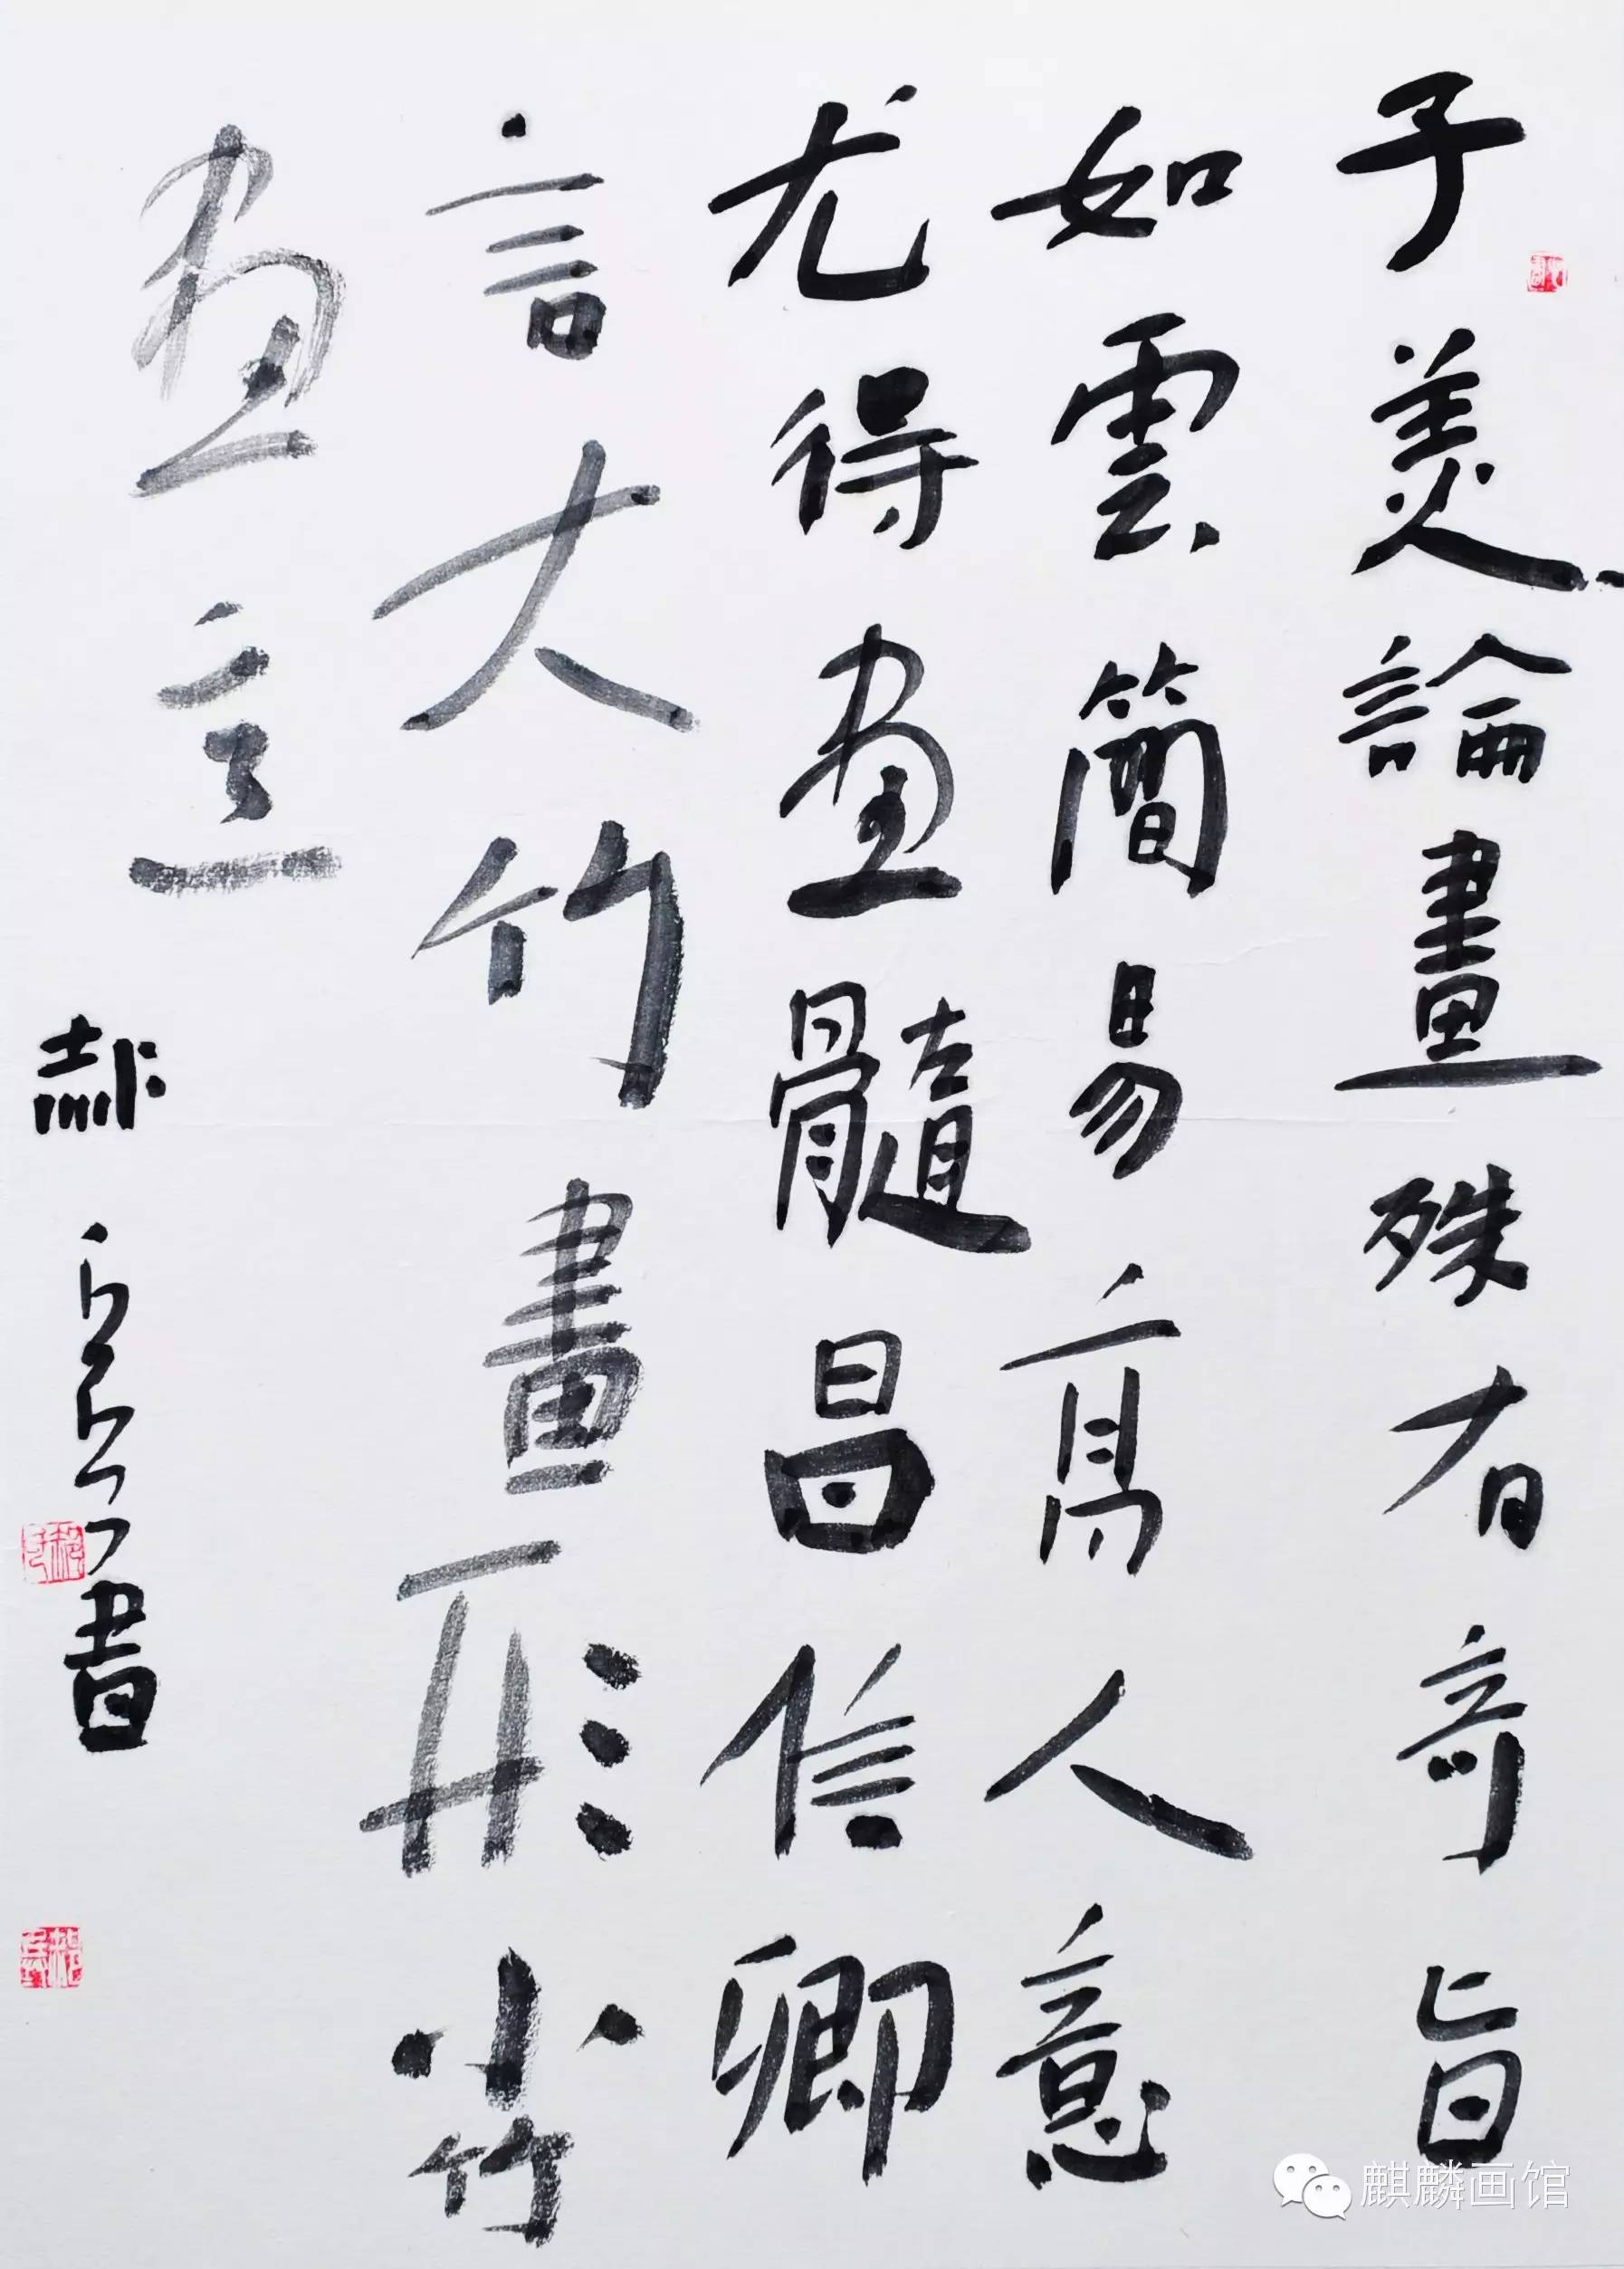 子美論畫殊有奇旨
如雲簡易高人意
尤得画髓昌信卿
言大竹畫形小竹
画意
郝兵書
麒麟画馆